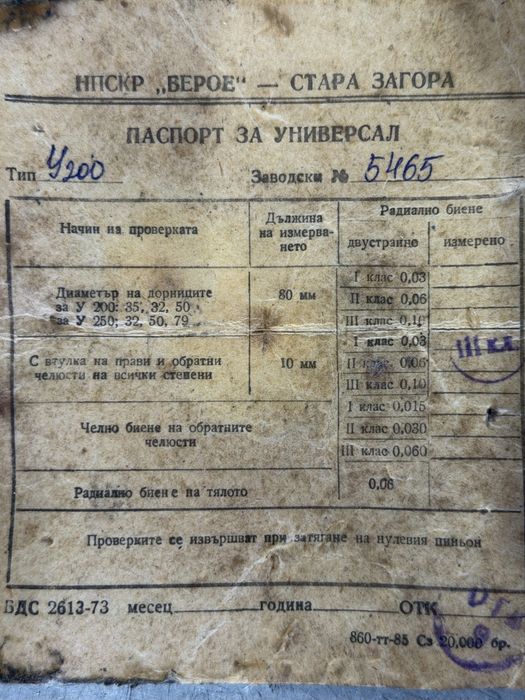 НПСКР „БЕРОЕ“ — СТАРА ЗАГОРА
ПАСПОРТ ЗА УНИВЕРСАЛ
Тип У200 Заводски № 5465
Начин на проверката
Дължина на измерва-нето
Радиално биене
двустранно измерено
Диаметър на дорниците
за У 200: 35, 32, 50
за У 250; 32, 50, 79
80 мм
I клас 0,03
II клас 0,06
III клас 0,10
С втулка на прави и обратни
челюсти на всички степени
10 мм
I клас 0,03
II клас 0,06
III клас 0,10
III кл.
Челно биене на обратните
челюсти
I клас 0,015
II клас 0.030
III клас 0,060
Радиално биене на тялото
0,06
Проверките се извършват при затягане на нулевия пиньон
БДС 2613-73 месец година ОТК
860-тт-85 Сз 20,000 бр.